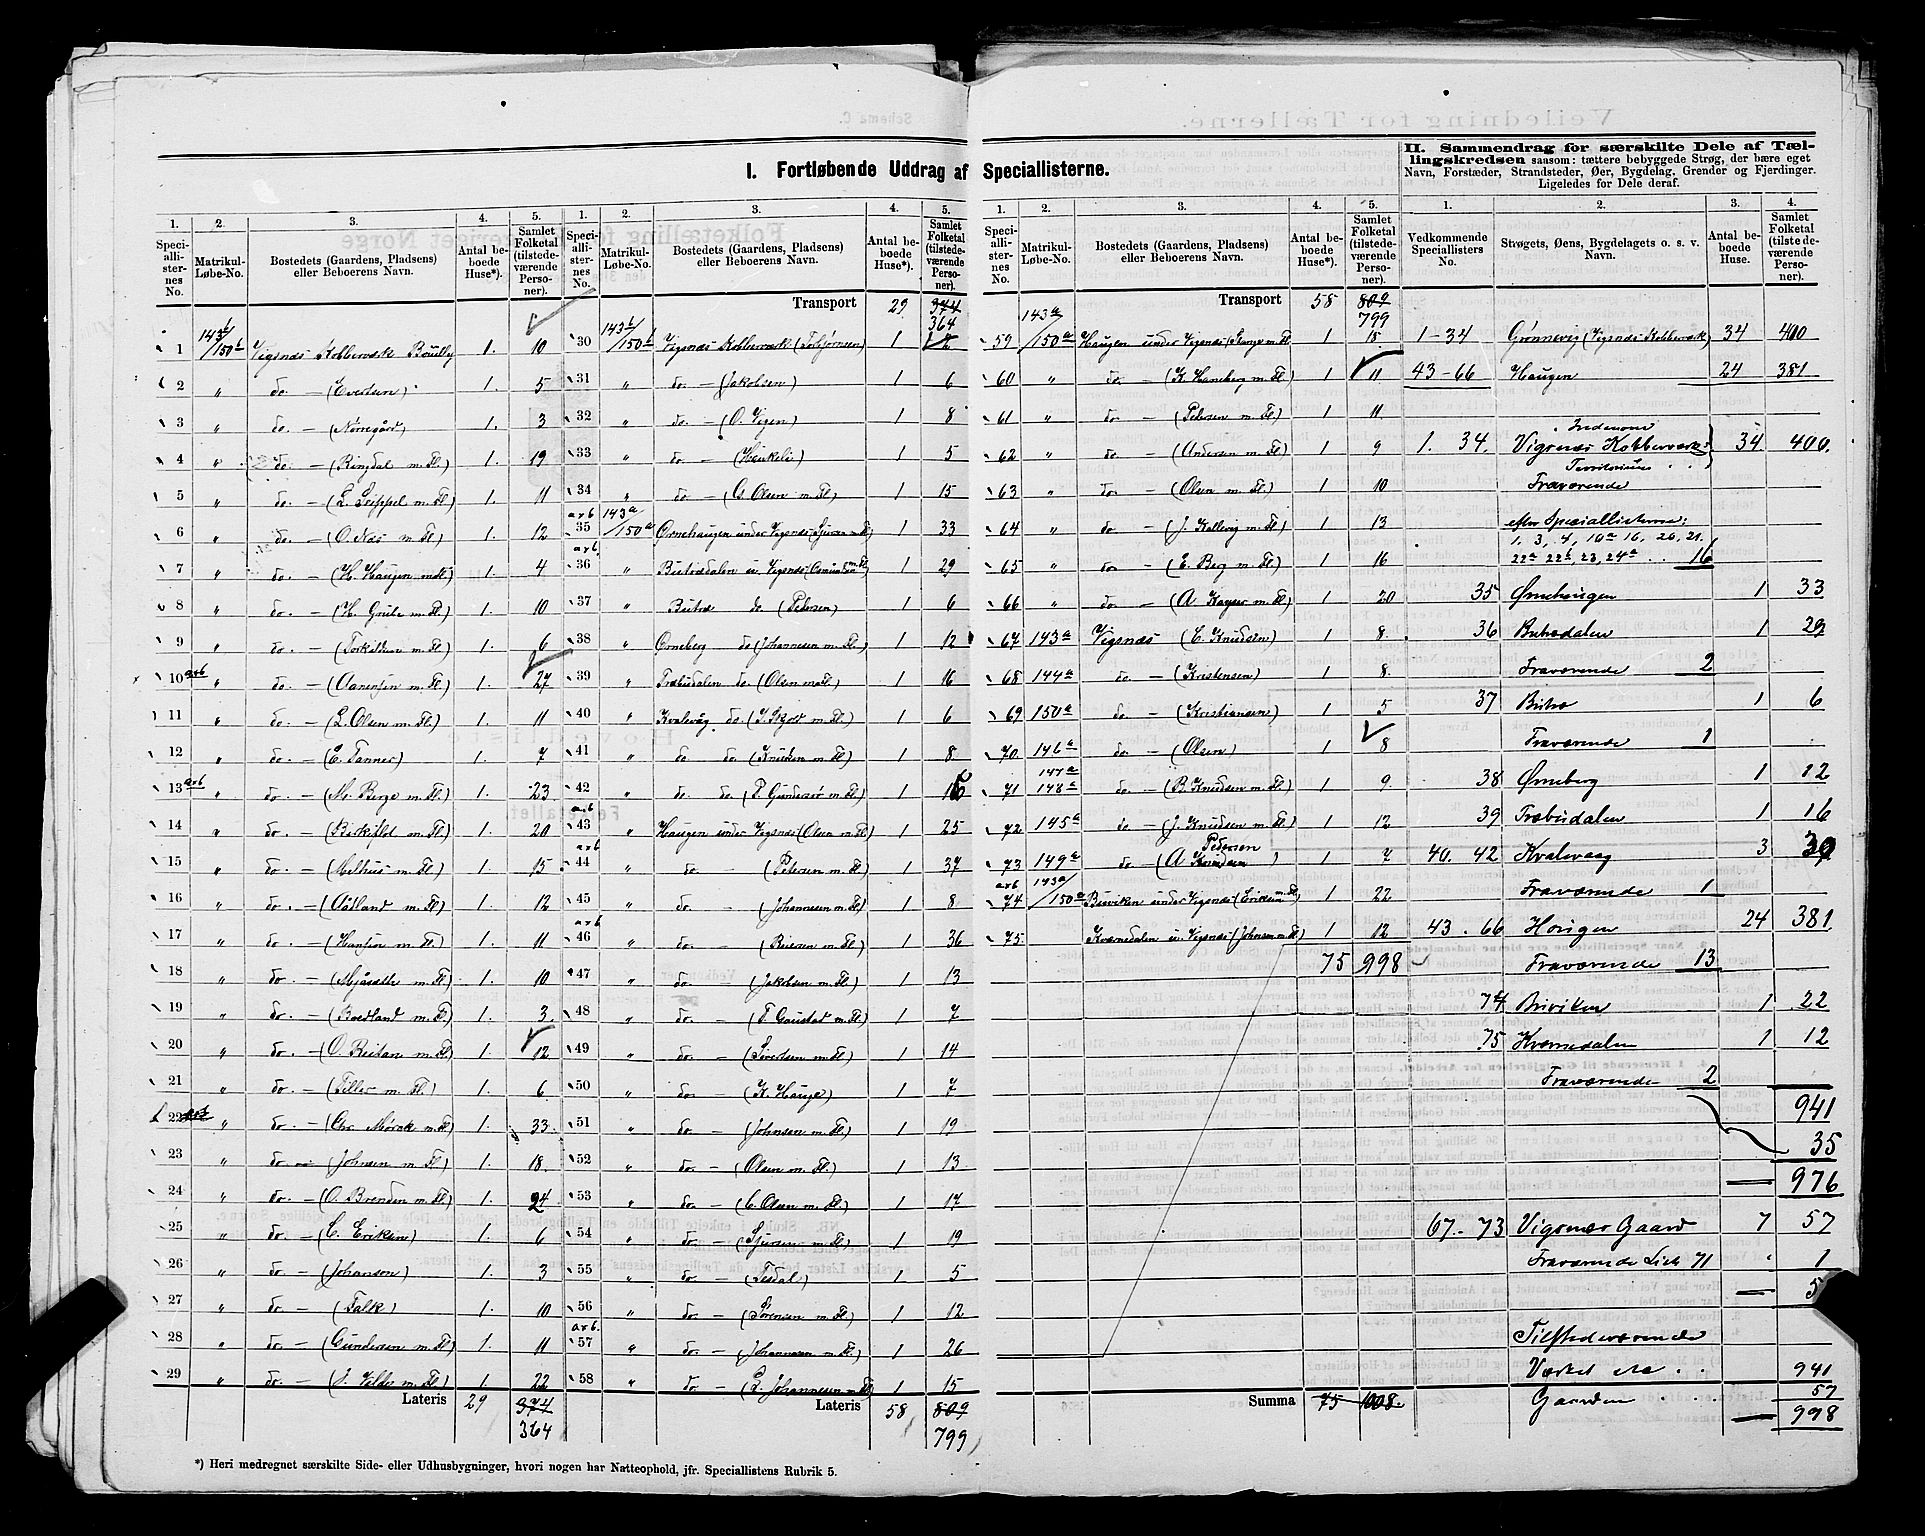 I. Fortløbende Uddrag af Speciallisterne.
1. 2. 3. 4. 5. 1. 2. 3. 4. 5.
Speciallisternes No. Matrikul-Løbe-No. Bostedets (Gaardens, Pladsens) eller Beboerens Navn. Antal beboede Huse*). Samlet Folketal (tilstedeværende Personer).
143b/150b
1 Vigsnæs Kobberværk 1. 10
2 " do. — (Evertsen) 1. 5
3 " do. — (Nørregård) 1. 3
4 " do. — (Ringdal m. Fl.) 1. 19
5 " do. — 1. 11
6 " do. — (O. Næs m. Fl.) 1. 12
7 " do. — (H. Haugen m Fl.) 1. 4
8 " do. — (H. Grule m. Fl.) 1. 10
9 " do. — (Torkildsen m. Fl.) 1. 6
10 a+b " do. — (Aanensen m. Fl.) 1. 27
11 " do. — (L. Olsen m. Fl.) 1. 11
12 " do. — (C. Tanner) 1. 7
13 a+b " do. — (M. Berge m. Fl.) 1. 23
14 " do. — 1. 20
15 " do. — (Melhus m. Fl.) 1. 15
16 " do. — (Aadland m. Fl.) 1. 12
17 " do. — (Hansen m. Fl.) 1. 11
18 " do. — 1. 10
19 " do. — (Roedland m. Fl.) 1. 3.
20 " do. — (O. Reitan m. Fl.) 1. 12
21 " do. — (Tiller m. Fl.) 1. 6
22 " do. — (Chr. Mørck m. Fl.) 1. 33
23 " do. — (Johnsen m. Fl.) 1. 18.
24 " do. — (O. Brenden m. Fl.) 1. 24
25 " do. — (C. Eriksen) 1. 6
26 " do. — (Johanson) 1. 3
27 " do. — (Falk) 1. 10
28 " do. — (Gundersen m. Fl.) 1. 11
29 " do. — 1. 22
Lateris 29 374
364
Transport 29 374
364
30 143b/150b Vigsnæs Kobberværk (Torbjørnsen) 1 2
31 " do. — (Jakobsen) 1 6
32 " do. — (O. Vigen) 1 8
33 " do — (Henkeli) 1 5
34 " do — (G. Olsen m. Fl.) 1 15
35 a+b 143a/150a Ørnehaugen under Vigsnæs 1 33
36 a+b " 1 29
37 " do. (Pedersen) 1 6
38 Ørneberg do (Johannesen m. Fl.) 1 12
39 " Træbudalen do. (Olsen m. Fl.) 1 16
40 " Kvalevåg do. 1 6
41 " do do. (Knudsen m. Fl.) 1 8.
42 " do. do. 1 16
43 a+b " Haugen under Vigsnæs (Olsen m. Fl.) 1 25
44 a+b " do — (Petersen m. Fl.) 1 37
45 " do. (Johannesen m. Fl.) 1 8
46 a+b " do. — 1 36
47 " do. — (Jakobsen m. Fl.) 1 13
48 " do. — (T. Gaustad m. Fl.) 1 7
49 " do. — (Sivertsen m. Fl.) 1 14
50 " do. — (K. Hauge) 1 7
51 " do. — (Johnsen m. Fl.) 1 19
52 " do. — (Olsen m. Fl.) 1 13
53 " do. — (C. Olsen m. Fl.) 1 17
54 " do. — (Sjursen m. Fl.) 1 19
55 " do. — (Tesdal) 1 5
56 " do. — (Sørensen m. Fl.) 1 12
57 a+b " do. — (Johannesen m. Fl.) 1 26
58 " do — (L. Johannesen m. Fl.) 1 15
Lateris 58 809
799
*) Heri medregnet særskilte Side- eller Udhusbygninger, hvori nogen har Natteophold, jfr. Speciallistens Rubrik 5.
Transport 58 809
799
59 143a/150a Haugen under Vigsnæs 1 15
60 " do. — (K. Haneberg m. Fl.) 1 11
61 " do — (Pedersen m. Fl.) 1 11
62 " do. — (Andersen m. Fl.) 1 9
63 " do. — (Olsen m. Fl.) 1 10
64 " do — (J. Kallevig m. Fl.) 1 13
65 " do — (E. Berg m. Fl.) 1 16
66 " do. — (A. Kayser m. Fl.) 1 20
67 143a Vigsnæs — (C. Knudsen) 1 8.
68 144a do. — (Kristensen) 1 8.
69 150a do. — (Kristiansen) 1 5
70 146a do. — (Olsen) 1 8
71 147a 148a do. — (B. Knudsen m. Fl.) 1 9.
72 145a do — (J. Knudsen m. Fl.) 1 12
73 149a do — (A Pedersen) 1 7
74 a+b 143a/150a under Vigsnæs (Eriksen m. Fl.) 1 22
75. Kværnedalen u. Vigsnæs (Johnsen m. Fl.) 1 12
75 998
Summa 75 1008.
II. Sammendrag for særskilte Dele af Tællingskredsen saasom: tættere bebyggede Strøg, der bære eget Navn, Forstæder, Strandsteder, Øer, Bygdelag, Grender og Fjerdinger. Ligeledes for Dele deraf.
1. 2. 3. 4.
Vedkommende Speciallisters No. Strøgets, Øens, Bygdelagets o. s. v. Navn. Antal beboede Huse. Samlet Folketal (tilstedeværende Personer).
1-34 Grønnevig (Vigsnæs Kobberværk 34 400
43-66 Haugen 24 381
Indenom
1. 34. Vigsnæs Kobberværks 34. 400.
Territorium
Fraværende
efter Speciallisterne:
1. 3, 4, 10a 16, 20, 21.
22a 22b, 23, 24a . . 16
35 Ørnehaugen 1 33
36 1 29
Fraværende 2
37 1 6
Fraværende 1
38 Ørneberg 1 12
39 Træbudalen 1 16
40. 42 Kvalevaag 3 30
Fraværende 1
43. 66 Haugen 24 381
Fraværende 13
74 1 22
75 Kværnedalen 1 12
Fraværende 2
941
35
976
67-73 Vigsnæs Gaard 7 57
Fraværende List 71 " 1
5
Tilstedeværende
Værket etc . . 941
Gaarden . . . 57
998